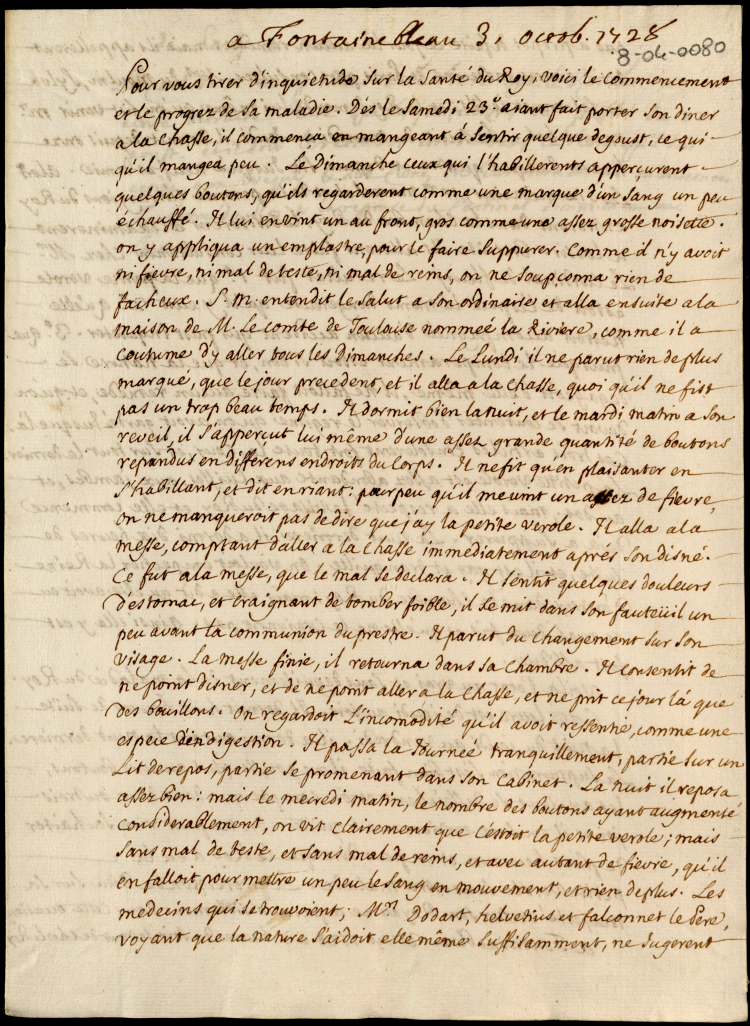 a Fontainebleau 3, octob. 1728
8-04-0080
Pour vous tirer d'inquietude sur la santé du Roy, voici le commencement
et le progrez de sa maladie. Dès le samedi 23.e aiant fait porter son diner
a la chasse, il commença en mangeant à sentir quelque degoust, ce qui
qu'il mangea peu. Le Dimanche ceux qui l'habillerents apperçurent
quelques boutons, qu'ils regarderent comme une marque d'un sang un peu
échauffé. Il lui en vint un au front, gros comme une assez grosse noisette.
on y appliqua un emplastre, pour le faire suppurer. Comme il n'y avoit
ni fievre, ni mal de teste, ni mal de reins, on ne soupçonna rien de
facheux. S. m. entendit le salut a son ordinaire et alla ensuite a la
maison de M. Le comte de Toulouse nommeé la Riviere, comme il a
coutume d'y aller tous les Dimanches. Le Lundi il ne parut rien de plus
marqué, que le jour precedent, et il alla a la chasse, quoi qu'il ne fist
pas un trop beau temps. Il dormit bien la nuit, et le mardi matin a son
reveil, il s'apperçut lui même d'une assez grande quantité de boutons
repandus en differens endroits du corps. Il ne fit qu'en plaisanter en
s'habillant, et dit en riant: pour peu qu'il me vint un de fievre,
on ne manqueroit pas de dire que j'ay la petite verole. Il alla a la
messe, comptant d'aller a la chasse immediatement aprés son disné.
Ce fut a la messe, que le mal se declara. Il sentit quelques douleurs
d'estomac, et craignant de tomber foible, il se mit dans son fauteüil un
peu avant la communion du prestre. Il parut du changement sur son
visage. La messe finie, il retourna dans sa chambre. Il consentit de
ne point disner, et de ne point aller a la chasse, et ne prit ce jour là que
des bouillons. On regardoit l'incomodité qu'il avoit ressentie, comme une
espece d'endigestion. Il passa la Journeé tranquillement, partie sur un
Lit de repos, partie se promenant dans son cabinet. La nuit il reposa
assez bien: mais le mecredi matin, le nombre des boutons ayant augmenté
considerablement, on vit clairement que c'estoit la petite verole; mais
sans mal de teste, et sans mal de reins, et avec autant de fievre, qu'il
en falloit pour mettre un peu le sang en mouvement, et rien de plus. Les
medecins qui se trouvoient; Mrs. Dodart, helvetius et falconnet le Pere,
voyant que la nature s'aidoit elle même suffisamment, ne jugerent